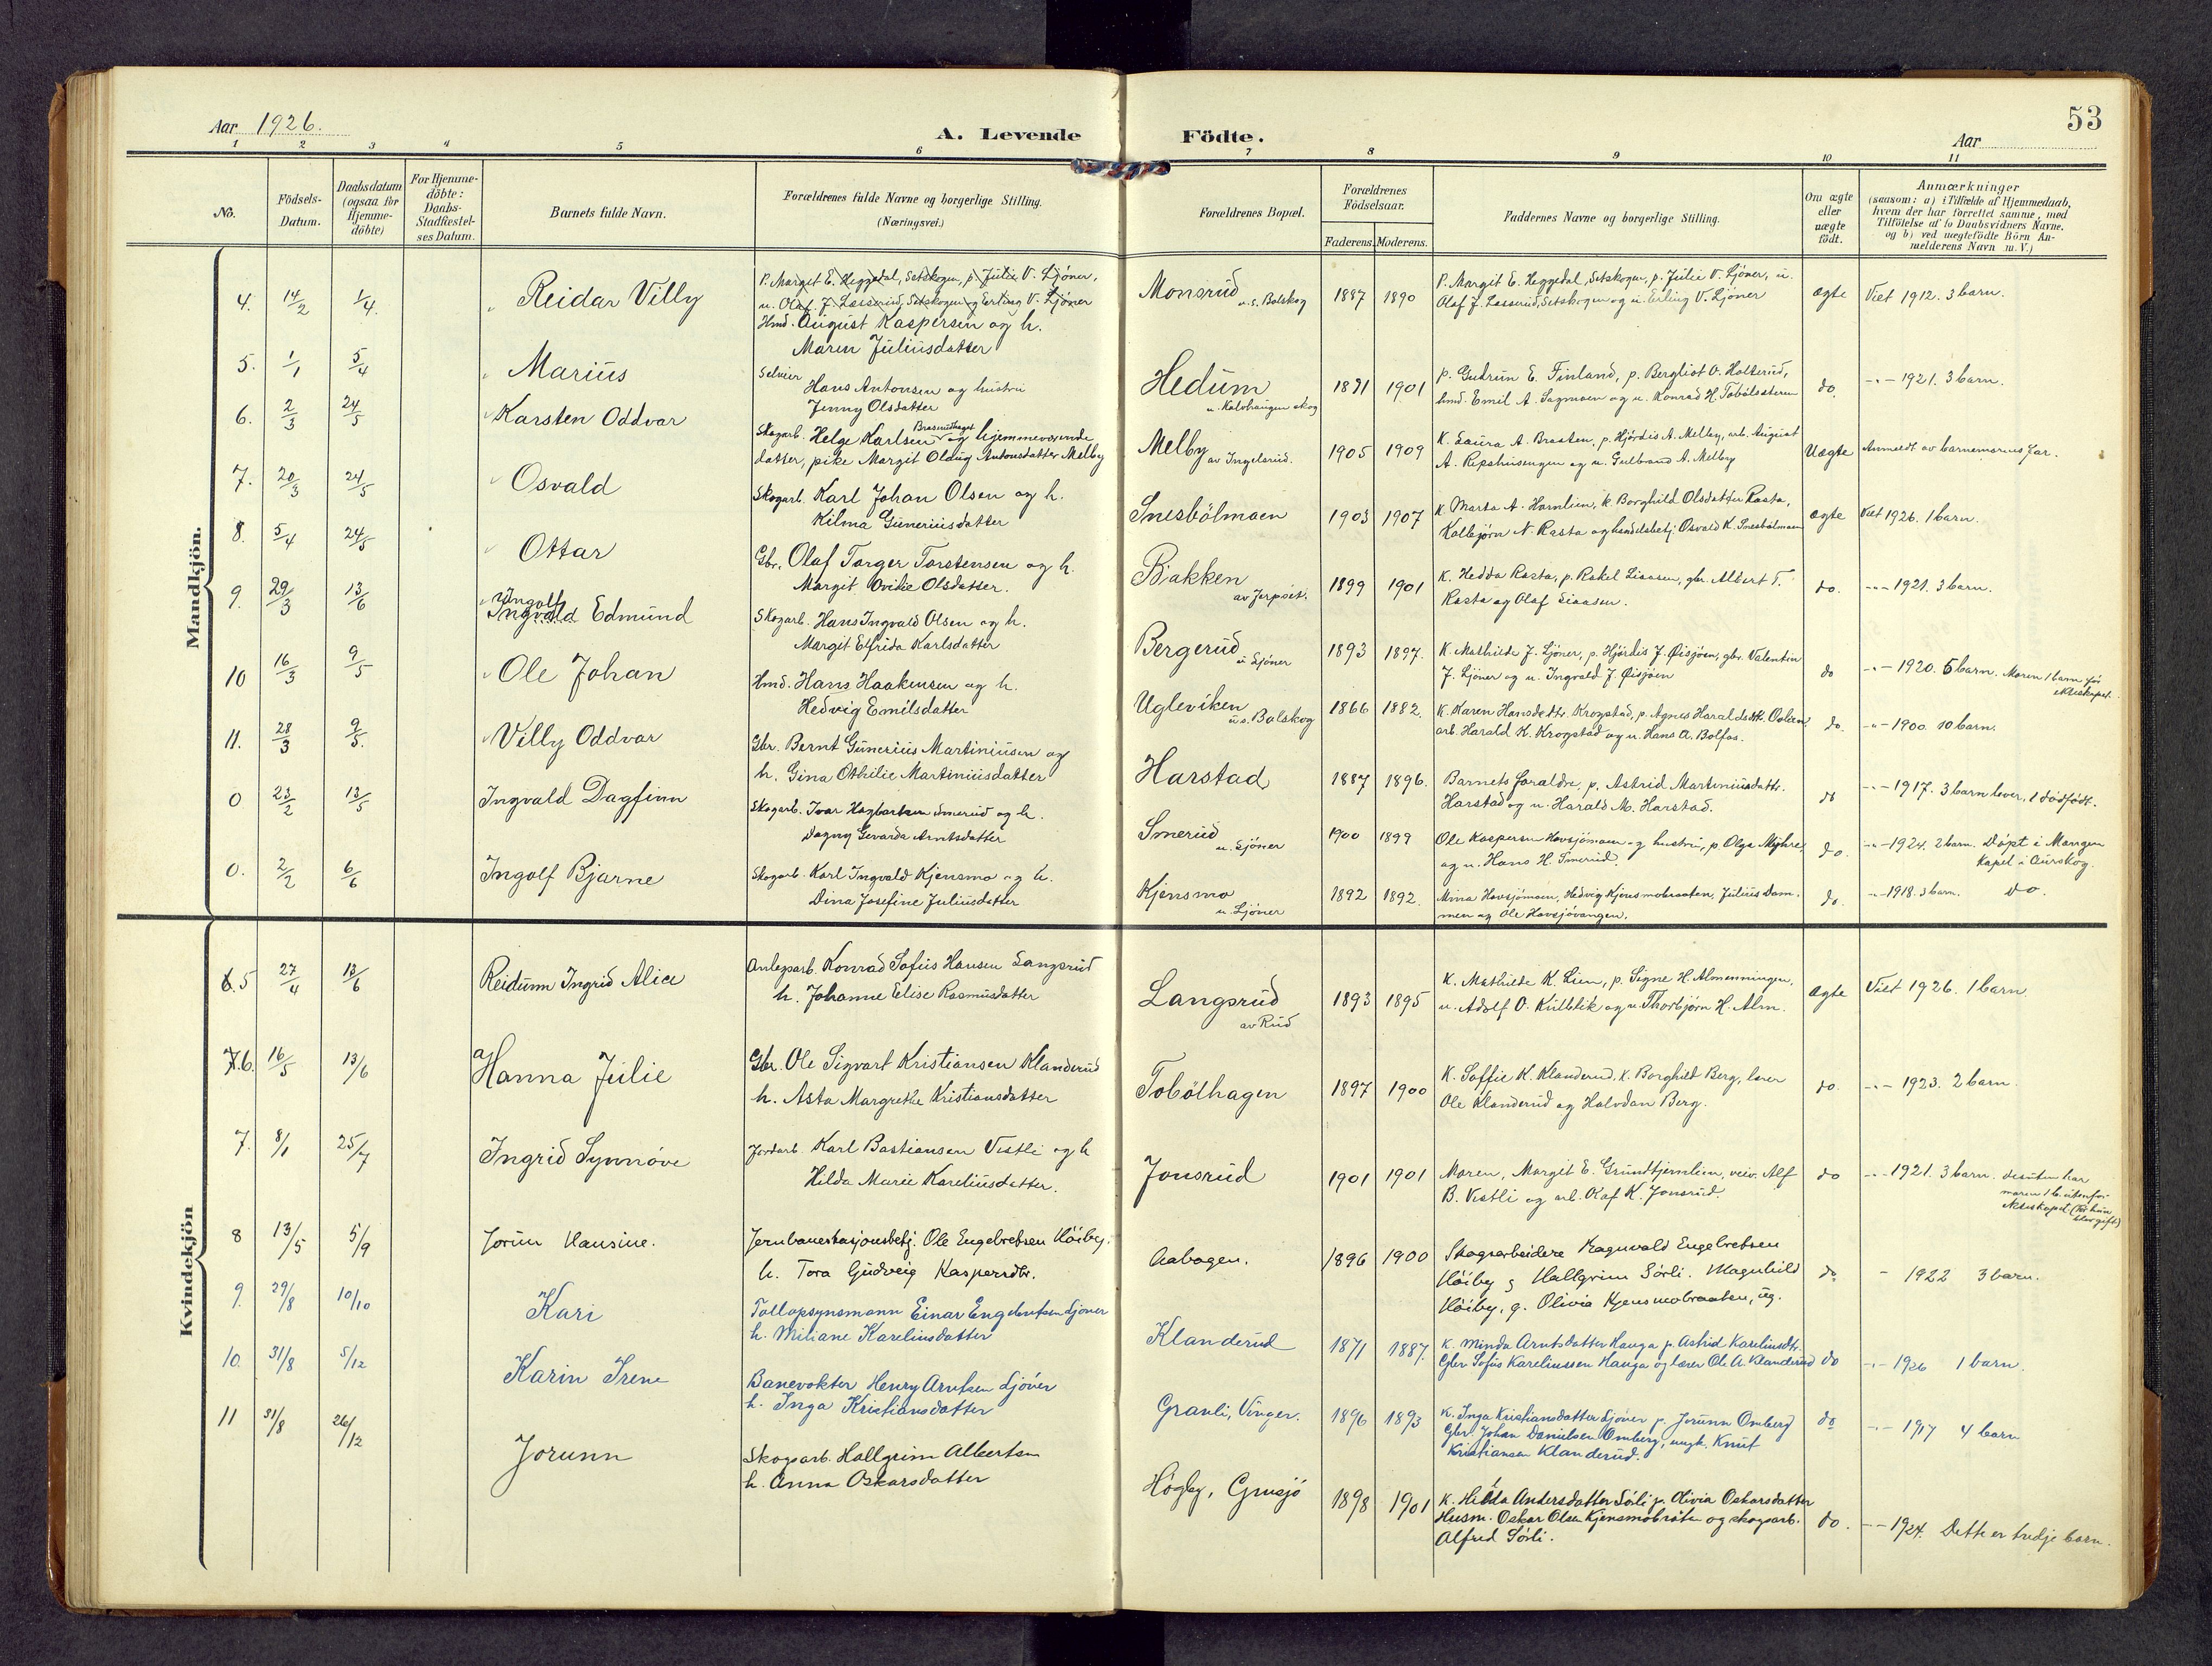 53
Aar 1926.
A. Levende
Födte.
Aar
1 2 3 4 5 6 7 8 9 10 11
No.
Födsels-
Datum.
Daabsdatum
(ogsaa for
Hjemme-
döbte)
For Hjemme-
döbte:
Daabs-
Stadfæstel-
ses Datum.
Barnets fulde Navn.
Forældrenes fulde Navne og borgerlige Stilling.
(Næringsvei.)
Forældrenes Bopæl.
Forældrenes
Födselsaar.
Faderens. Moderens.
Faddernes Navne og borgerlige Stilling.
Om ægte
eller
uægte
födt.
Anmærkninger
(saasom: a) i Tilfælde af Hjemmedaab,
hvem der har forrettet samme, med
Tilföielse af to Daabsvidners Navne.
og b) ved uægtefödte Börn An-
melderens Navn m. V.)
Mandkjön.
4. 14/2 1/4. Reidar Villy
P. Margit E. Heggedal, Setskogen, p. Julie V. Ljöner,
u. Olaf J. Lasserud, Setskogen og Erling V. Ljöner
Hmd. August Kaspersen og h.
Maren Juliusdatter
Monsrud
u. s. Bolskog
1887 1890
P. Margit E. Heggedal, Setskogen, p. Julie V. Ljöner, u.
Olaf J. Lasserud, Setskogen og u. Erling V. Ljöner
ægte Viet 1912. 3 barn.
5. 1/1 5/4 Marius
Selveier
Hans Antonsen og hustru
Jenny Olsdatter
Hedum
u. Kolohaugen skog
1891 1901
p. Gudrun E. Finland, p. Bergliot O. Holterud,
hmd. Emil A. Sagmoen og u. Konrad H. Tobölsæteren
do. -"- 1921. 3 barn.
6. 2/3 24/5 Karsten Oddvar
Braserudhaget
Skogarb. Helge Karlsen og hjemmeværende
datter, pike Margit Oldug Antonsdatter Melby
Melby
av Ingelsrud.
1905 1909
K. Laura A. Braaten, p. Hjördis A. Melby, arb. August
A. Ripshusengen og u. Gulbrand A. Melby
Uægte Anmeldt av barnemorens far.
7. 20/3 24/5 Osvald
Skogarb. Karl Johan Olsen og h.
Kilma Guneriusdatter
Snesbölmoen
1903 1907
K. Marta A. Hamlien, k. Borghild Olsdatter Rasta,
Kolbjørn N. Rasta og handelsbetj. Osvald K. Snesbölmoen
ægte Viet 1926. 1 barn.
8. 5/4 24/5 Ottar
Gbr. Olaf Torger Torstensen og h.
Margit Ovidie Olsdatter.
Bakken
av Jerpset.
1899 1901
K. Hedda Rasta, p. Rakel Liaasen, gbr. Albert T.
Rasta og Olaf Liaasen.
do. -"- 1921. 3 barn.
9. 29/3 13/6
Ingolf
Ingvald Edmund
Skogarb. Hans Ingvald Olsen og h.
Margit Elfrida Karlsdatter
Bergerud
u. Ljöner
1893 1897.
K. Mathilde J. Ljöner, p. Hjördis J. Øisjøen, gbr. Valentin
J. Ljöner og u. Ingvald J. Øisjøen
do -"- 1920. 5 barn. Moren 1 barn før
ekteskapet.
10 16/3 9/5 Ole Johan
Hmd. Hans Haakensen og h.
Hedvig Emilsdatter
Ugleviken
u. s. Bolskog
1866 1882.
K. Karen Hansdatter Krogstad, p. Agnes Haraldsdtr. Oolsen
arb. Harald K. Krogstad og u. Hans A. Bolfos.
do. -"- 1900. 10 barn.
11. 28/3 9/5. Villy Oddvar
Gbr. Bernt Gunerius Martiniusen og
h. Gina Othilie Martiniusdatter
Harstad
1887 1896.
Barnets foraldre, p. Astrid Martiniusdattr.
Harstad og u. Harald M. Harstad.
do -"- 1917. 3 barn lever, 1 dødfødt.
0 23/2 13/5 Ingvald Dagfinn
Skogarb. Ivar Hagbartsen Smerud og h.
Dagny Gevarda Arntsdatter
Smerud
u. Ljöner
1900 1899
Ole Kaspersen Hovsjömoen og hustru, p. Olga Myhre,
og u. Hans H. Smerud.
do. -"- 1924. 2 barn. Döpt i Mangen
kapel i Aurskog.
0. 2/2 6/6 Ingolf Bjarne
Skogarb. Karl Ingvald Kjensmo og h.
Dina Josefine Juliusdatter
Kjensmo
u. Ljöner
1892 1892.
Mina Hovsjömoen, Hedvig Kjensmobraaten, Julius Dam-
men og Ole Hovsjövangen.
do. -"- 1918. 3 barn. do.
Kvindekjön
6. 5 27/4 13/6 Reidunn Ingrid Alice
Anlegsarb. Konrad Sofus Hansen Langsrud
h. Johanne Elise Rasmusdatter
Langsrud
av Rud
1893 1895
K. Mathilde K. Lien, p. Signe H. Almenningen,
u. Adolf O. Kulblik og u. Thorbjørn H. Alm.
Ægte Viet 1926. 1 barn.
7. 6. 16/5 13/6 Hanna Julie
Gbr. Ole Sigvart Kristiansen Klanderud
h. Asta Margrethe Kristiansdatter
Tobölhagen
1897 1900
K. Soffie K. Klanderud, k. Borghild Berg, lærer
Ole Klanderud og Halvdan Berg.
do. -"- 1923. 2 barn.
7. 8/1 25/7 Ingrid Synnöve
Jordarb. Karl Bastiansen Vestli og h
Hilda Marie Kareliusdatter.
Jonsrud
1901 1901
Moren, Margit E. Grundtjernlien, veiv. Alf
B. Vestli og arb. Olaf K. Jonsrud.
do -"- 1921. 3 barn. desuten har
moren 1 b. utenfor
ekteskapet (før hun
blev gift)
8 13/5 5/9 Jorun Hansine.
Jernbanestasjonsbetj. Ole Engebretsen Höiby.
h. Tora Gudveig Kaspersdtr.
Aabogen.
1896 1900
Skogsarbeidere Ragnvald Engebretsen
Höiby og Hallgrim Sörli. Magnhild
Höiby, g. Olivia Kjensmobraaten, ug.
do " 1922 3 barn.
9. 29/8 10/10 Kari
Tollopsynsmann Einar Engebretsen Ljöner
h. Miliane Kareliusdatter
Klanderud
1871 1887.
K. Minda Arntsdatter Hauga p. Astrid Kareliusdtr.
Gbr Sofus Kareliussen Hauga og lærer Ole A. Klanderud
do -"- 1926 1 barn.
10. 31/8 5/12 Karin Irene
Banevokter Henry Arntsen Ljöner
h. Inga Kristiansdatter
Granli, Vinger.
1896 1893
K. Inga Kristiansdatter Ljöner p. Jorunn Omberg
Gbr. Johan Danielsen Omberg, ungk. Knut
Kristiansen Klanderud.
do -"- 1917 4 barn
11 31/8 26/12 Jorunn
Skogsarb. Hallgrim Albertsen
h. Anna Oskarsdatter
Högby, Grusjö
1898 1901
K. Hilda Andersdatter Sörli p. Olivia Oskarsdatter
Husm. Oskar Olsen Kjensmobråten og skogsarb.
Alfred Sörli.
do. -"- 1924. Dette er tredje barn.